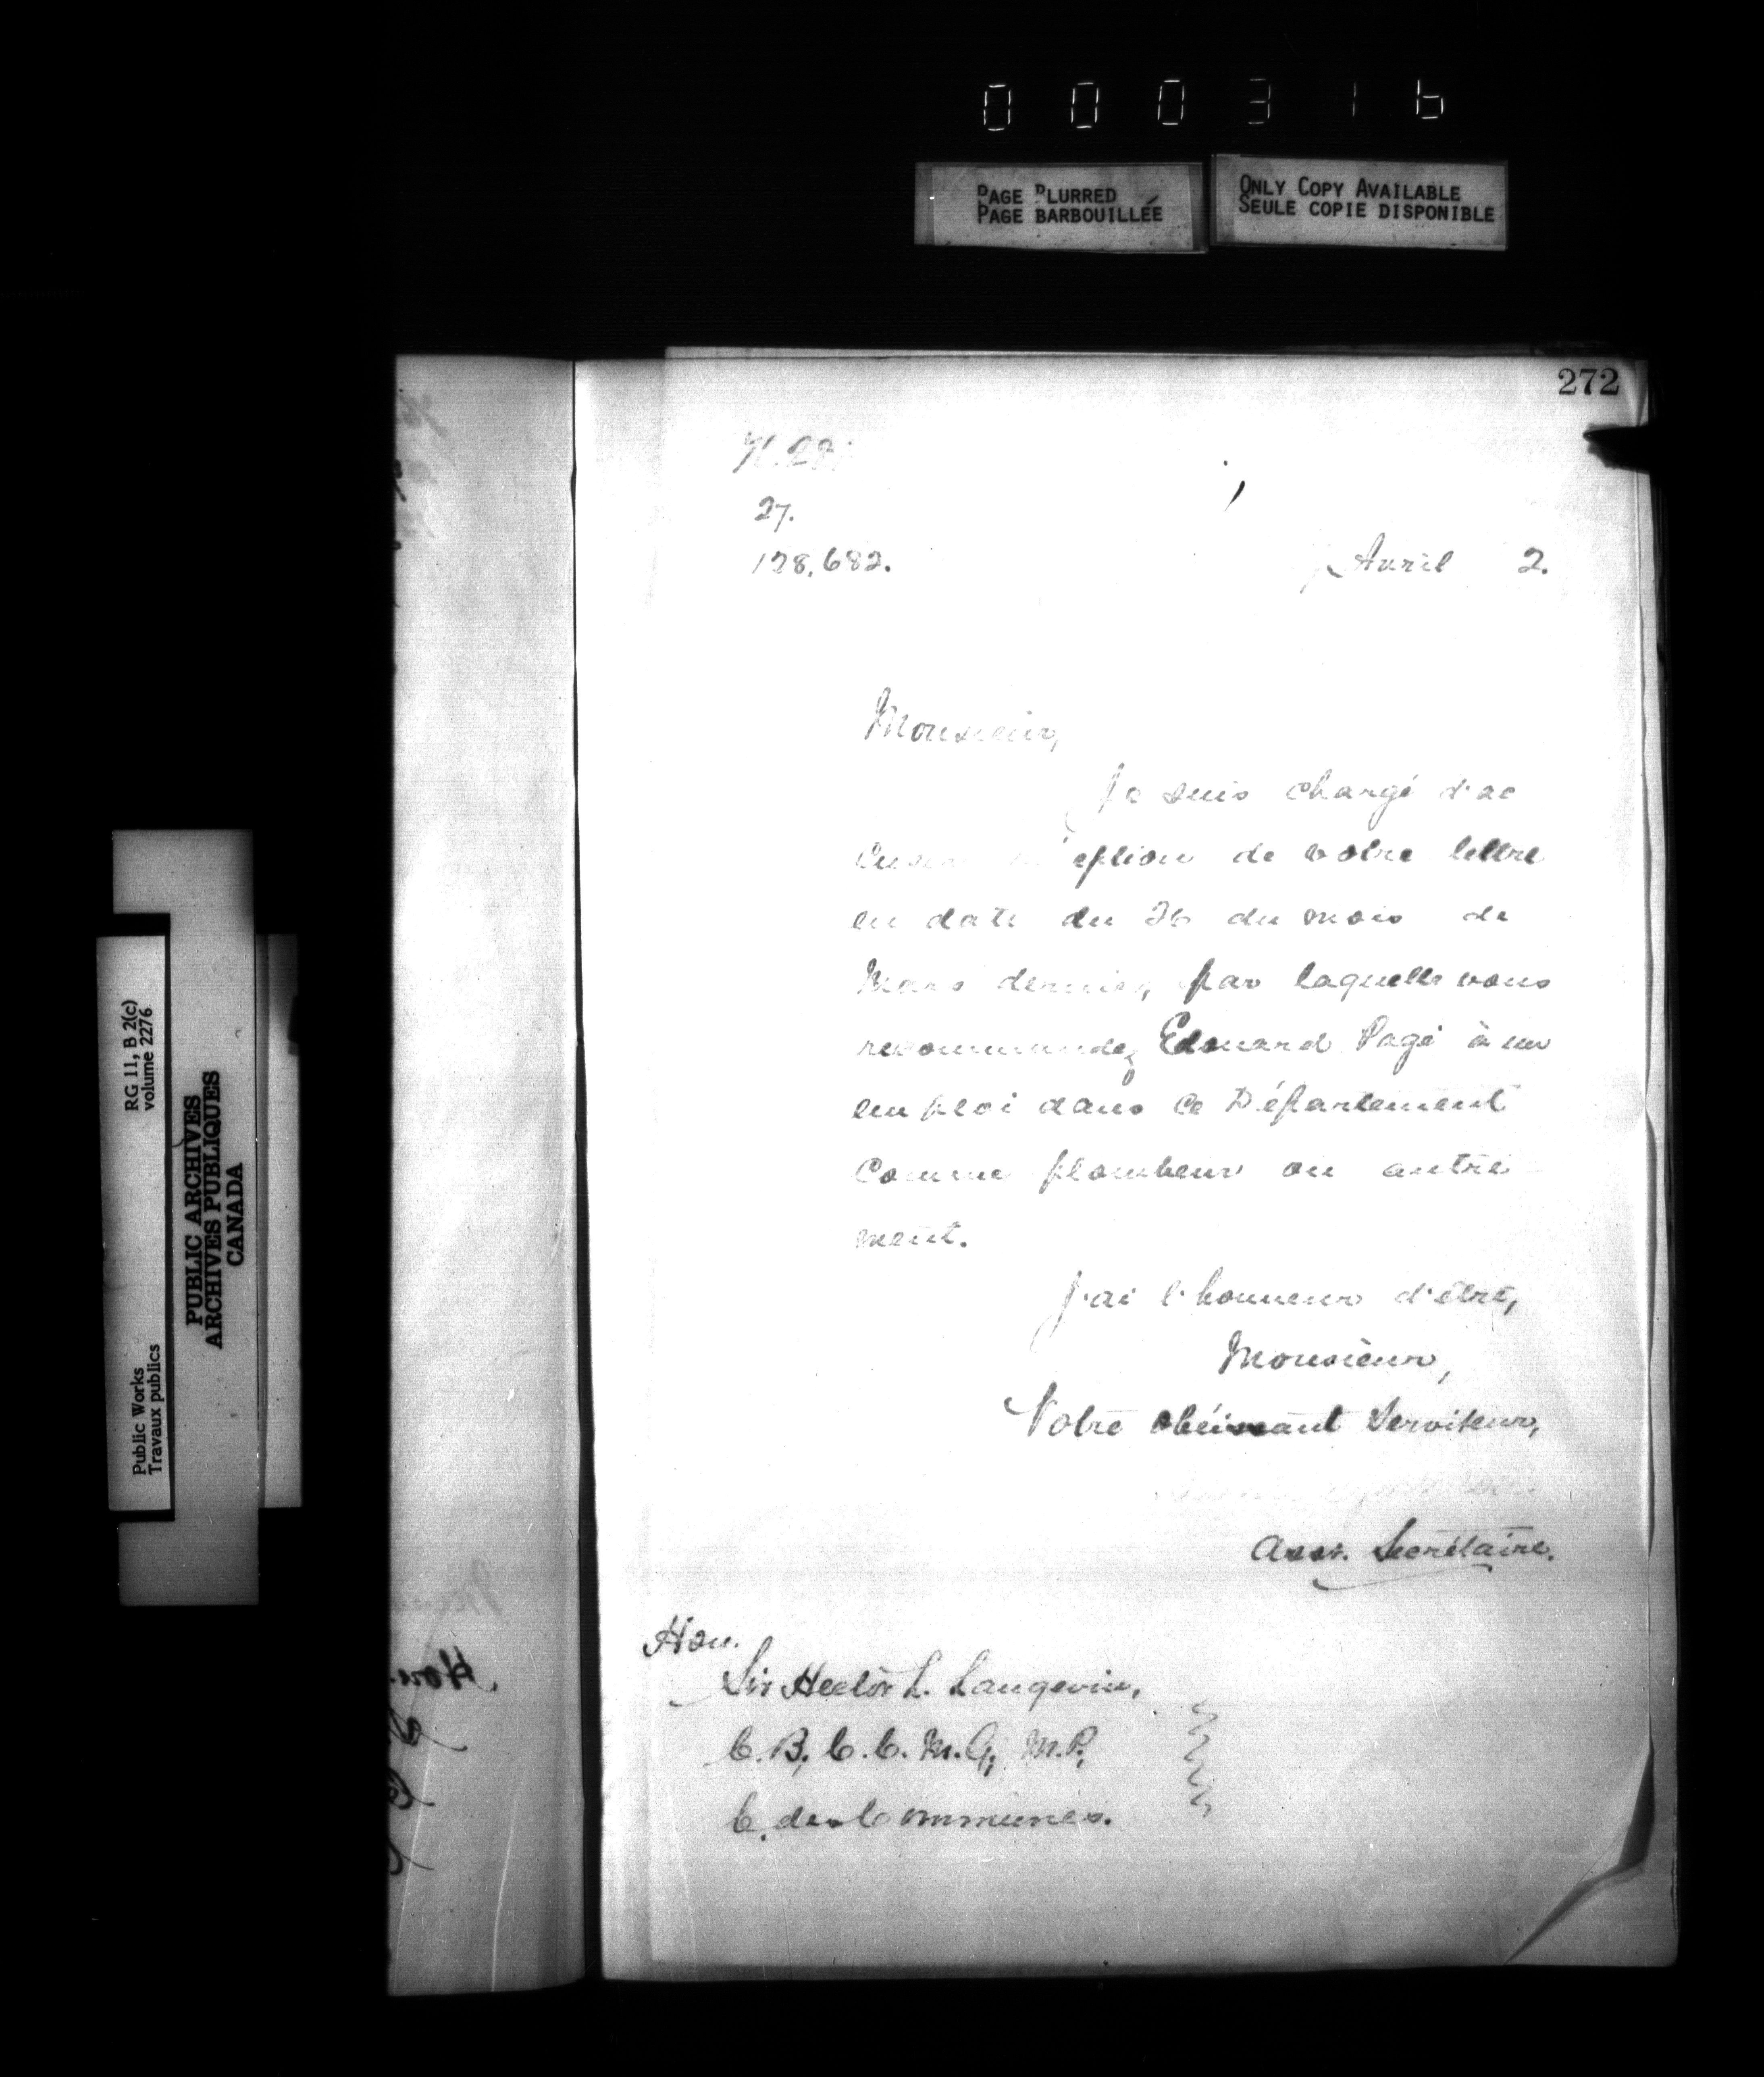 000316
PAGE BLURRED
PAGE BARBOUILLÉE
ONLY COPY AVAILABLE
SEULE COPIE DISPONIBLE
272
27.
128,682.
Avril 2.
Monsieur,
Je suis chargé d'ac
cuser réception de votre lettre
en date du 26 du mois de
Mars dernier, par laquelle vous
recommandez Edouard Pagé à un
emploi dans ce Département
comme plombeur ou autre-
ment.
J'ai l'honneur d'être,
Monsieur,
Votre obéissant Serviteur,
Asst. Secrétaire.
Hon.
Sir Hector L. Langevin,
C.B, C.C.M.G; M.P;
C. des Communes.
Hon.
RG 11, B 2(c)
volume 2276
Public Works
Travaux publics
PUBLIC ARCHIVES
ARCHIVES PUBLIQUES
CANADA